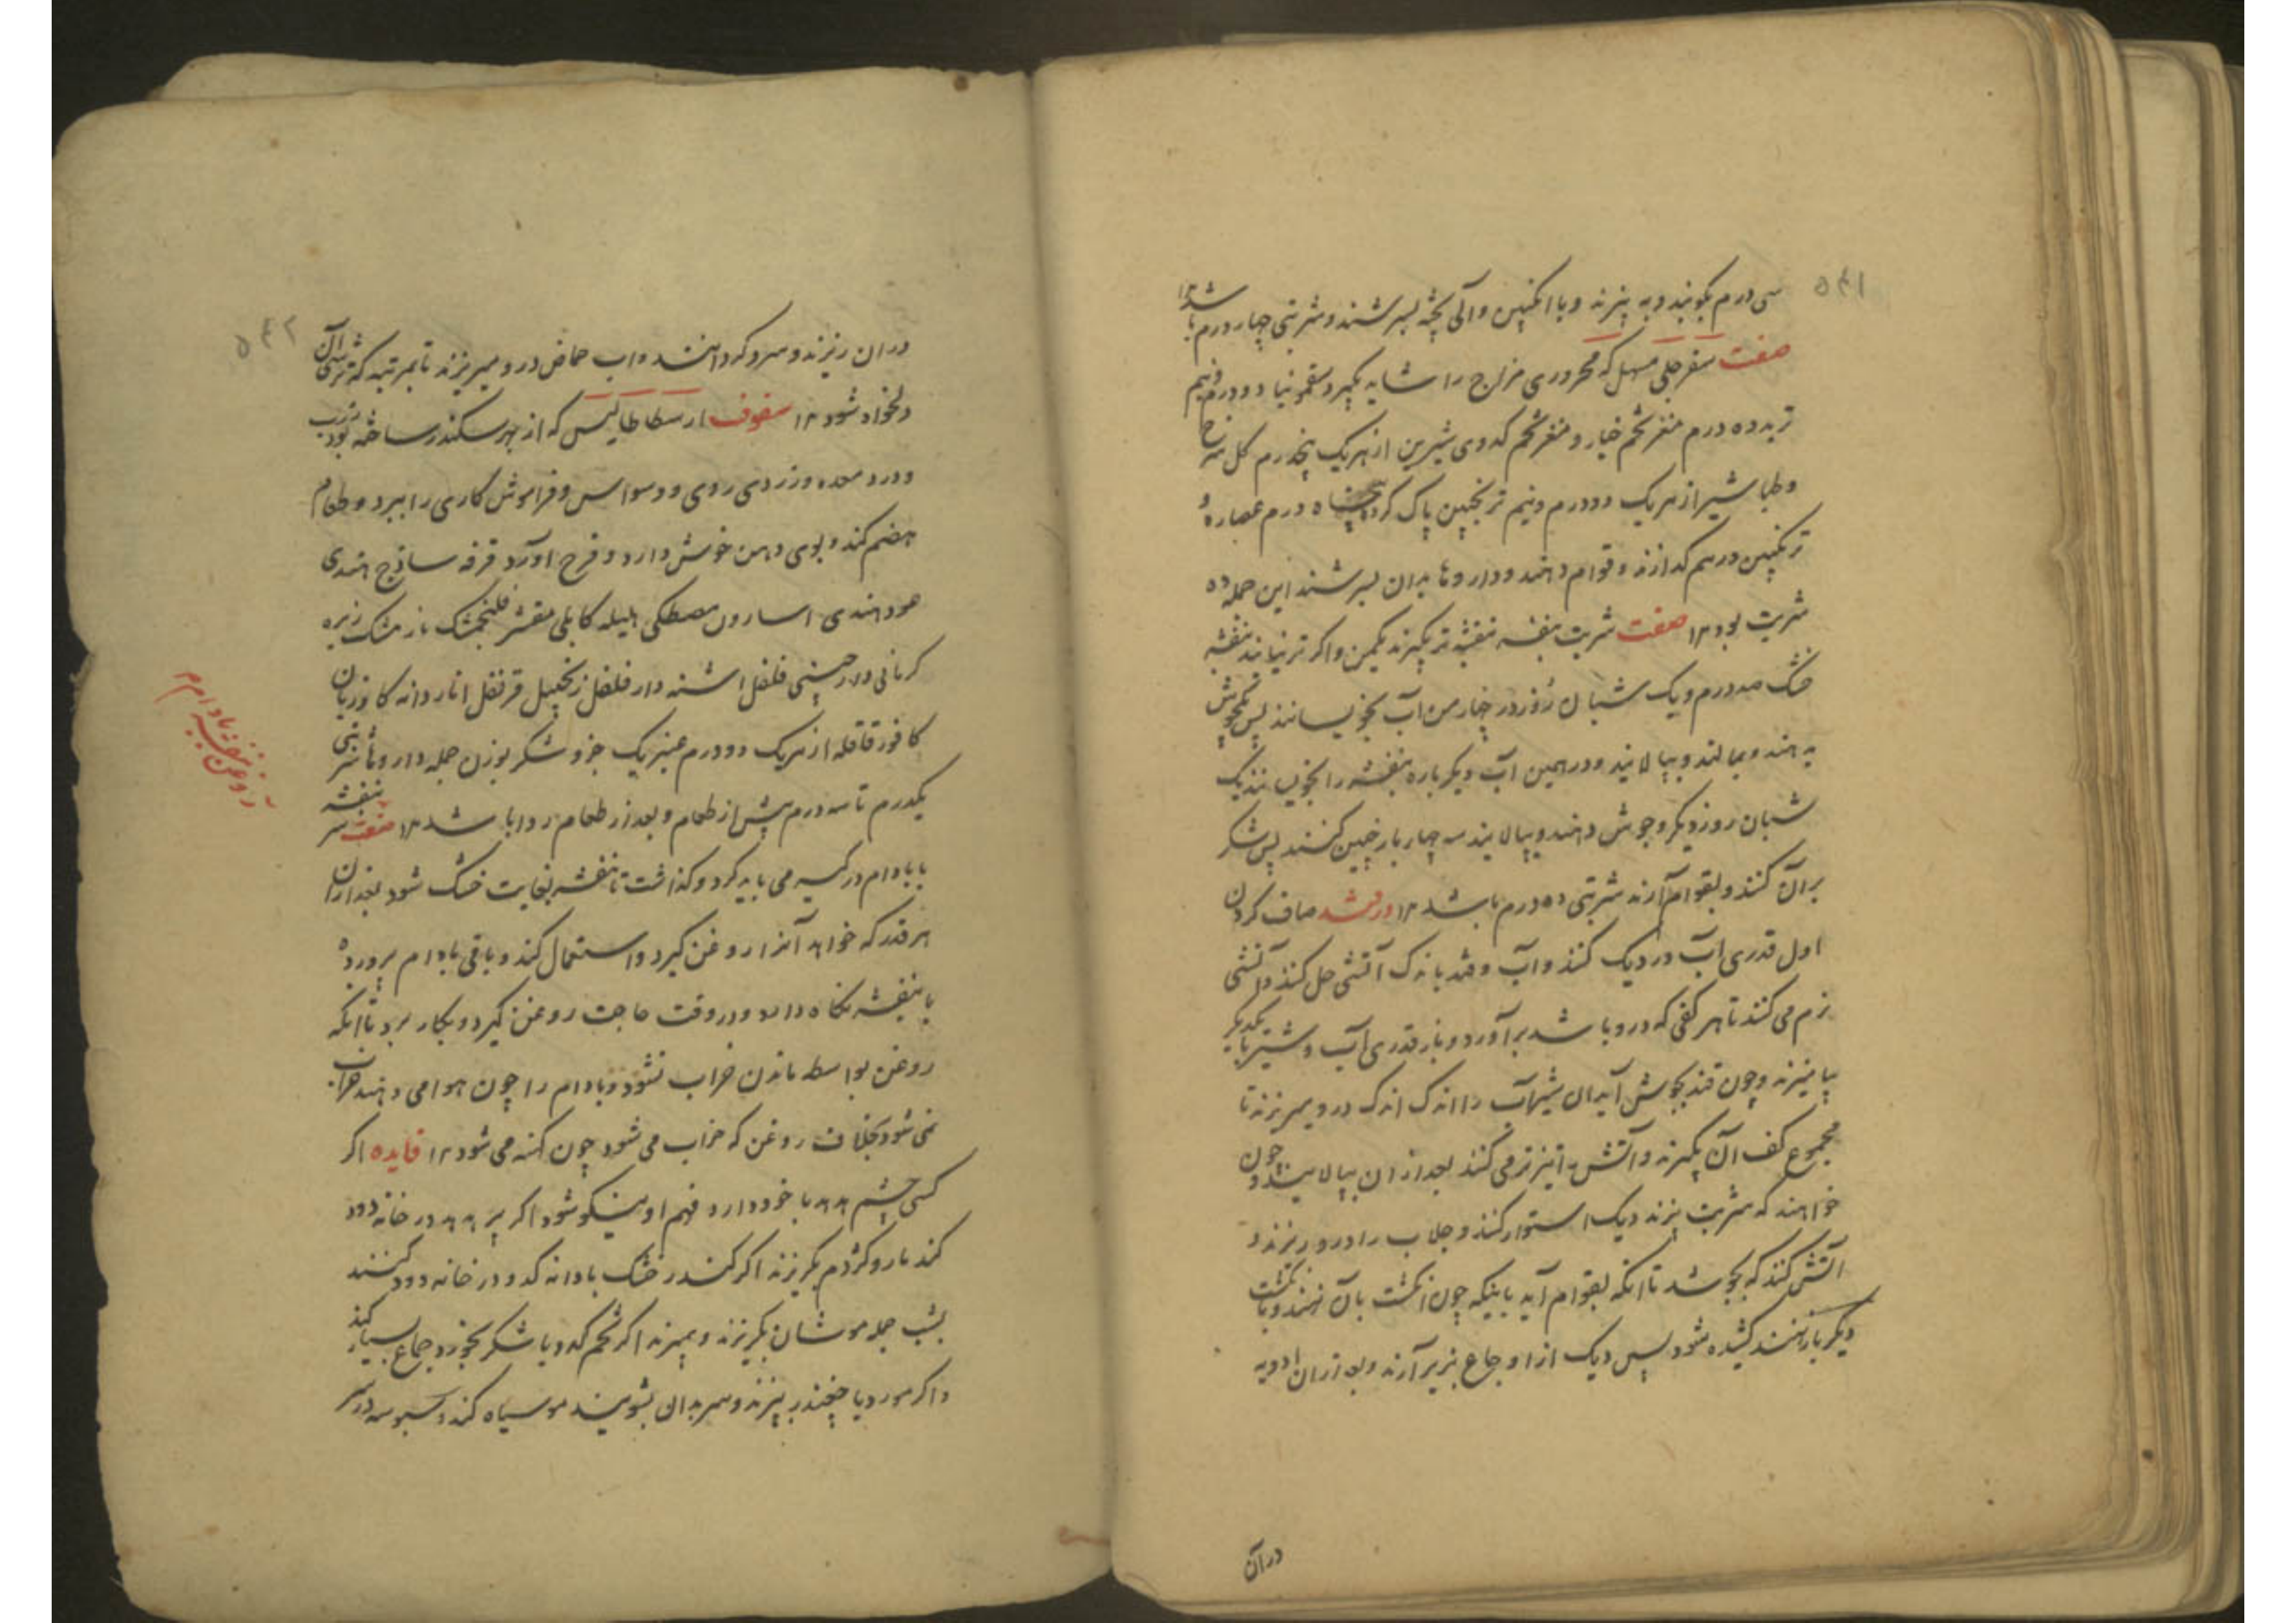 ۵۴۱
سی درم بکوبند و به پزند و با انگبین و آلی پخته بسرشند و شربتی چهار درم باشد ۱۲
صفت سفرجلی مسهل که محروری مزاج را شاید بگیرد سقمونیا دو درم و نیم
تربد ده درم مغز تخم خیار و مغز تخم کدوی شیرین از هریک پنجدرم گل سرخ
و طباشیر از هریک دو درم و نیم ترنجبین پاک کرده پنجاه درم عصاره و
ترنگبین درهم گدازند و قوام دهند و داروها بدان بسرشند این جمله ده
شربت بود ۱۲ صفت شربت بنفشه بنفشه تر بگیرند یکمن و اگر تر نیابند بنفشه
خشک صد درم و یک شبان روز در چهار من آب بخویسانند پس بجوش
بدهند و بمالند و بپالایند و در همین آب دیگر باره بنفشه را بخویسانند یک
شبان روز دیگر و جوش دهند و بپالایند سه چهار بار چنین کنند پس شکر
بر آن کنند و بقوام آرند شربتی ده درم باشد ۱۲ در قند صاف کردن
اول قدری آب در دیک کنند و آب و قند باندک آتشی حل کنند و آتشی
نرم می کنند تا هر کفی که درو باشد برآورد و باز قدری آب و شیر با یکدیگر
بیامیزند و چون قند بجوش آید آن شیرآب را اندک اندک در و میریزند تا
مجموع کف آن بگیرند و آتش را تیزتر می کنند بعد از ان بپالایند و چون
خواهند که شربت پزند دیک استوار کنند و جلاب را درو ریزند و
آتش کنند که بجوشد تا آنکه بقوام آید بآنیکه چون انگشت بآن نهند و بانگشت
دیگر باز نهند کشیده شود پس دیک از اوجاع بزیر آرند و بعد از ان ادویه
در آن
۵۴۲
در ان ریزند و سرو کرد انند و اب حماض در و میریزند تا بمرتبه که ترشی آن
دلخواه شود ۱۲ سفوف ارسطاطالیس که از بهر سکندر ساخته بود
و درد معده و زردی روی و وسواس و فراموش کاری را ببرد و طعام
هضم کند و بوی دهن خوش دارد و فرح اورد قرفه ساذج هندی
عود هندی اسارون مصطکی هلیله کابلی مقشر فلنجمشک نارمشک زیره
کرمانی دارچینی فلفل اشنه دارفلفل زنجبیل قرنفل انار دانه کاوزبان
کافور قاقله از هریک دو درم عنبر یک جزو شکر بوزن جمله داروها شربتی
یکدرم تا سه درم پیش از طعام و بعد از طعام روا باشد ۱۲ صفت بنفشه
با بادام در کیسه می باید کرد و گذاشت تا بنفشه بغایت خشک شود بعد از ان
هر قدر که خواهد آنرا روغن گیرد و استعمال کند و باقی بادام پرورده
با بنفشه نگاه دارد و در وقت حاجت روغن گیرد و بکار برد تا آنکه
روغن بواسطه ماندن خراب نشود و بادام را چون هوا می دهند خراب
نمی شود بخلاف روغن که خراب می شود چون کهنه می شود ۱۲ فایده اگر
کسی چشم هدهد با خود دارد فهم او نیکو شود اگر پر هدهد در خانه دود
کند مار و کژدم بگریزند اگر کندر خشک با دانه کدو در خانه دود کنند
بشب جمله موشان بگریزند و بمیرند اگر تخم کدو با شکر بخورد جماع بسیار کند
و اگر مورد با چغندر بپزند و سر بدان بشویند مو سیاه کند و سبوسه در سر
روغن بنفشه بادام